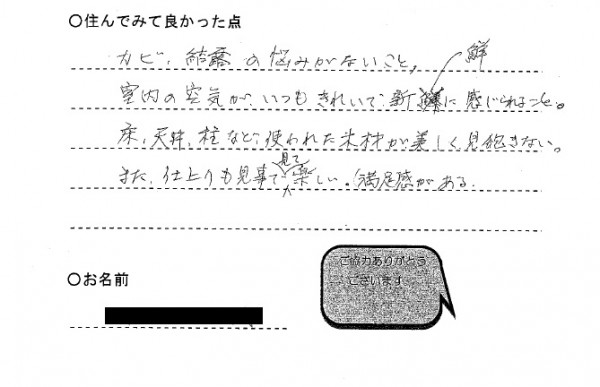 〇住んでみて良かった点
カビ、結露の悩みがないこと。
室内の空気が、いつもきれいで、新鮮に感じられること。
床、天井、柱など、使われた木材が美しく見飽きない。
また、仕上りも見事で見て楽しい。満足感がある。
〇お名前
ご協力ありがとう
ございます